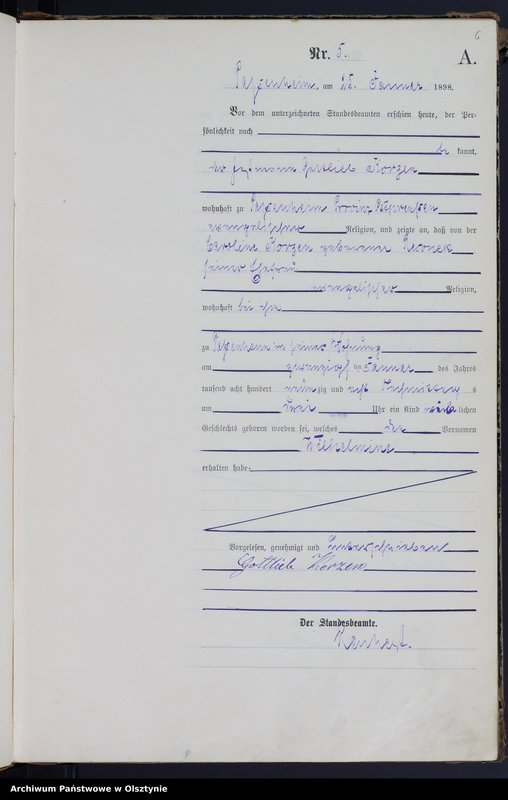 6
Nr. 5.
A.
am 25. Januar 1898.
Vor dem unterzeichneten Standesbeamten erschien heute, der Per-
sönlichkeit nach
be kannt,
der Gottlieb Korzen
wohnhaft zu Provinz Ostpreußen
evangelischer Religion, und zeigte an, daß von der
Korzen geborenen
seiner Ehefrau
evangelischer Religion,
wohnhaft bei ihm
zu in seiner Wohnung
am Januar des Jahres
tausend acht hundert neun zig und acht Vormittag s
um drei Uhr ein Kind weib lichen
Geschlechts geboren worden sei, welches den Vornamen
Wilhelmine
erhalten habe.
Vorgelesen, genehmigt und unterschrieben
Gottlieb Korzen
Der Standesbeamte.
Archiwum Państwowe w Olsztynie